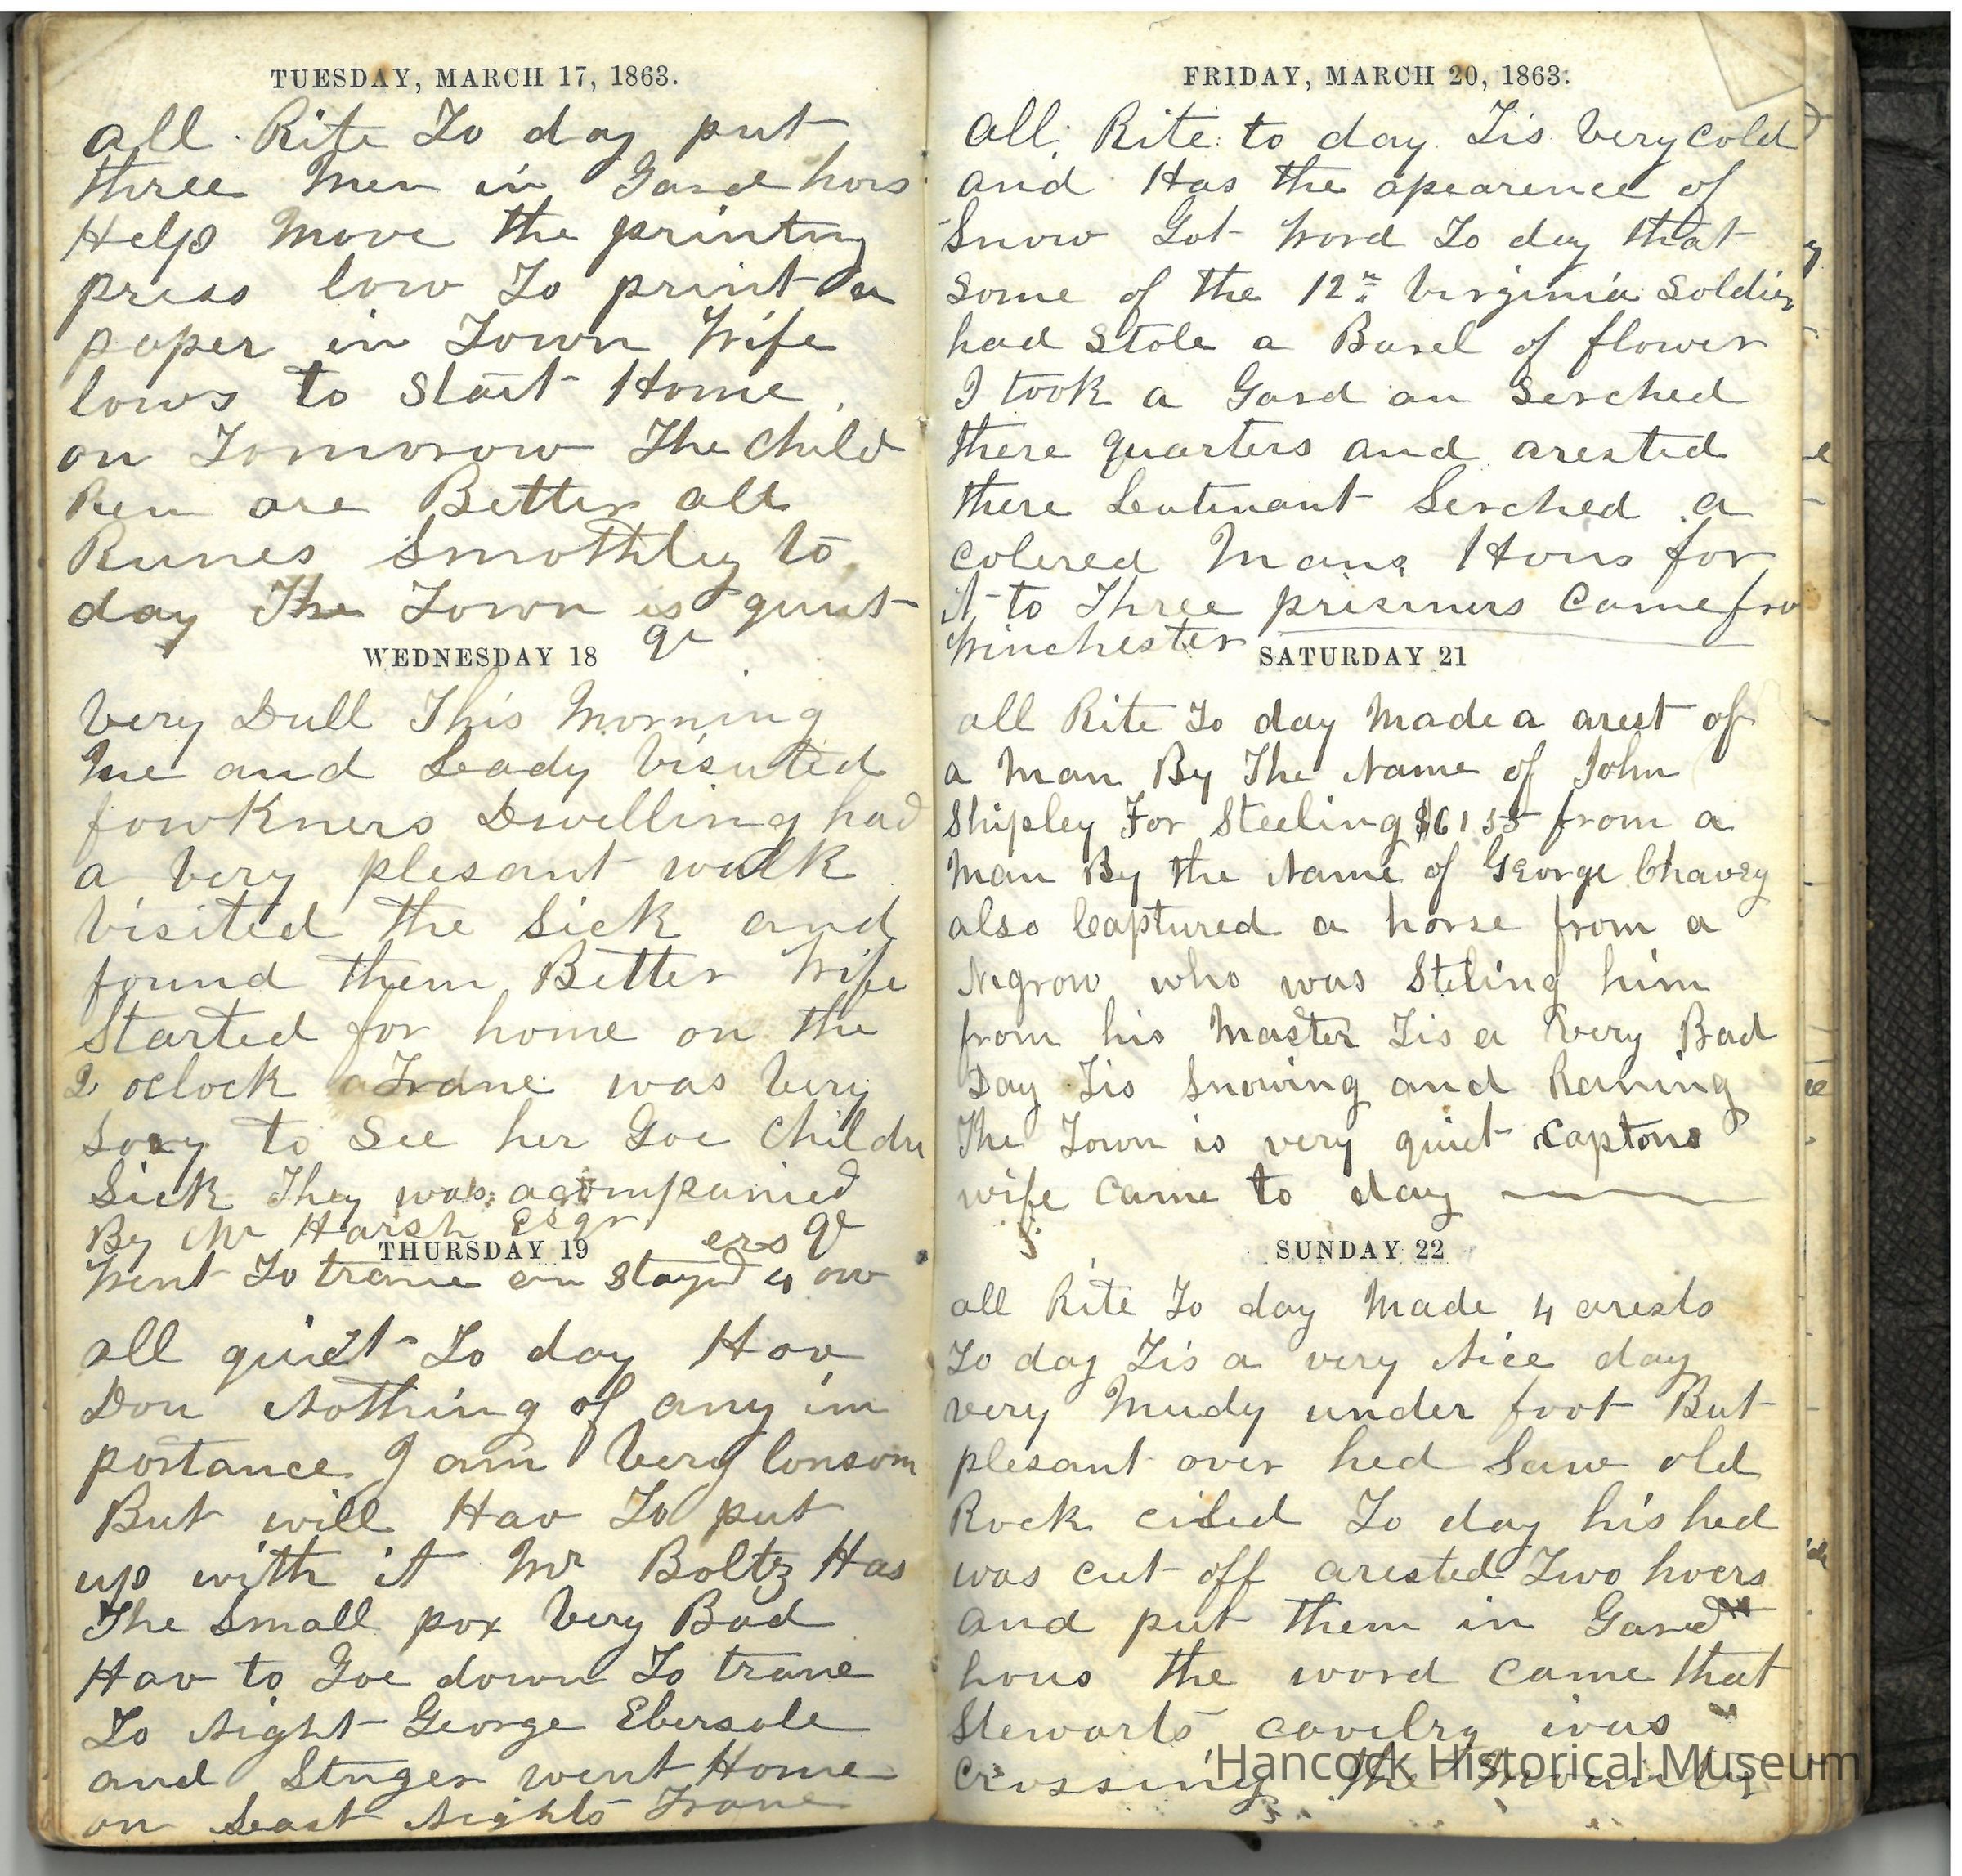 TUESDAY, MARCH 17, 1863.
all Rite To day put
three Men in Gard hous
Help Move the printing
press low To print a
paper in Town Wife
lows to Start Home
on Tomorow The Child
Ren are Better all
Runes Smothley to
day The Town is quiet
WEDNESDAY 18
very Dull This Morning
Me and Leady Visuted
fowkners Dwelling had
a very plesant walk
visited the Sick and
found them Better Wife
Started for home on the
2 oclock Trane was very
sory to See her Goe Childrn
Sick They was acompanied
By Mr Harsh Esqr
Went To trane an Stayed 4 ow
ers
THURSDAY 19
all quiet To day Hav
Don Nothing of any im
portance I am very lonsom
But will Hav To put
up with it Mr Boltz Has
The Small pox very Bad
Hav to Goe down To trane
To Night George Ebersole
and Stuger went Home
on Least Nights Trane
FRIDAY, MARCH 20, 1863.
all Rite to day Tis very cold
and Has the apearence of
Snow Got Word To day that
some of the 12th Virginia Soldier
had Stole a Barel of flower
I took a Gard an Serched
there quarters and arested
there Leutenant Serched a
colered Mans Hous for
it to Three prisiners Came fro
Winchester
SATURDAY 21
all Rite To day Made a arest of
a Man By The Name of John
Shipley For Steeling $61 55 from a
Man By the Name of George Chavey
also Captured a horse from a
Negrow who was Steling him
from his Master Tis a very Bad
Day Tis Snowing and Raning
The Town is very quiet Captons
wife Came to day
SUNDAY 22
all Rite To day Made 4 arests
To day Tis a very Nice day
very Mudy under foot But
plesant over hed Saw old
Rock ciled To day his hed
was cut off arested Two hoers
and put them in Gard
hous the word came that
Stewarts cavelry was
crossing the
Hancock Historical Museum